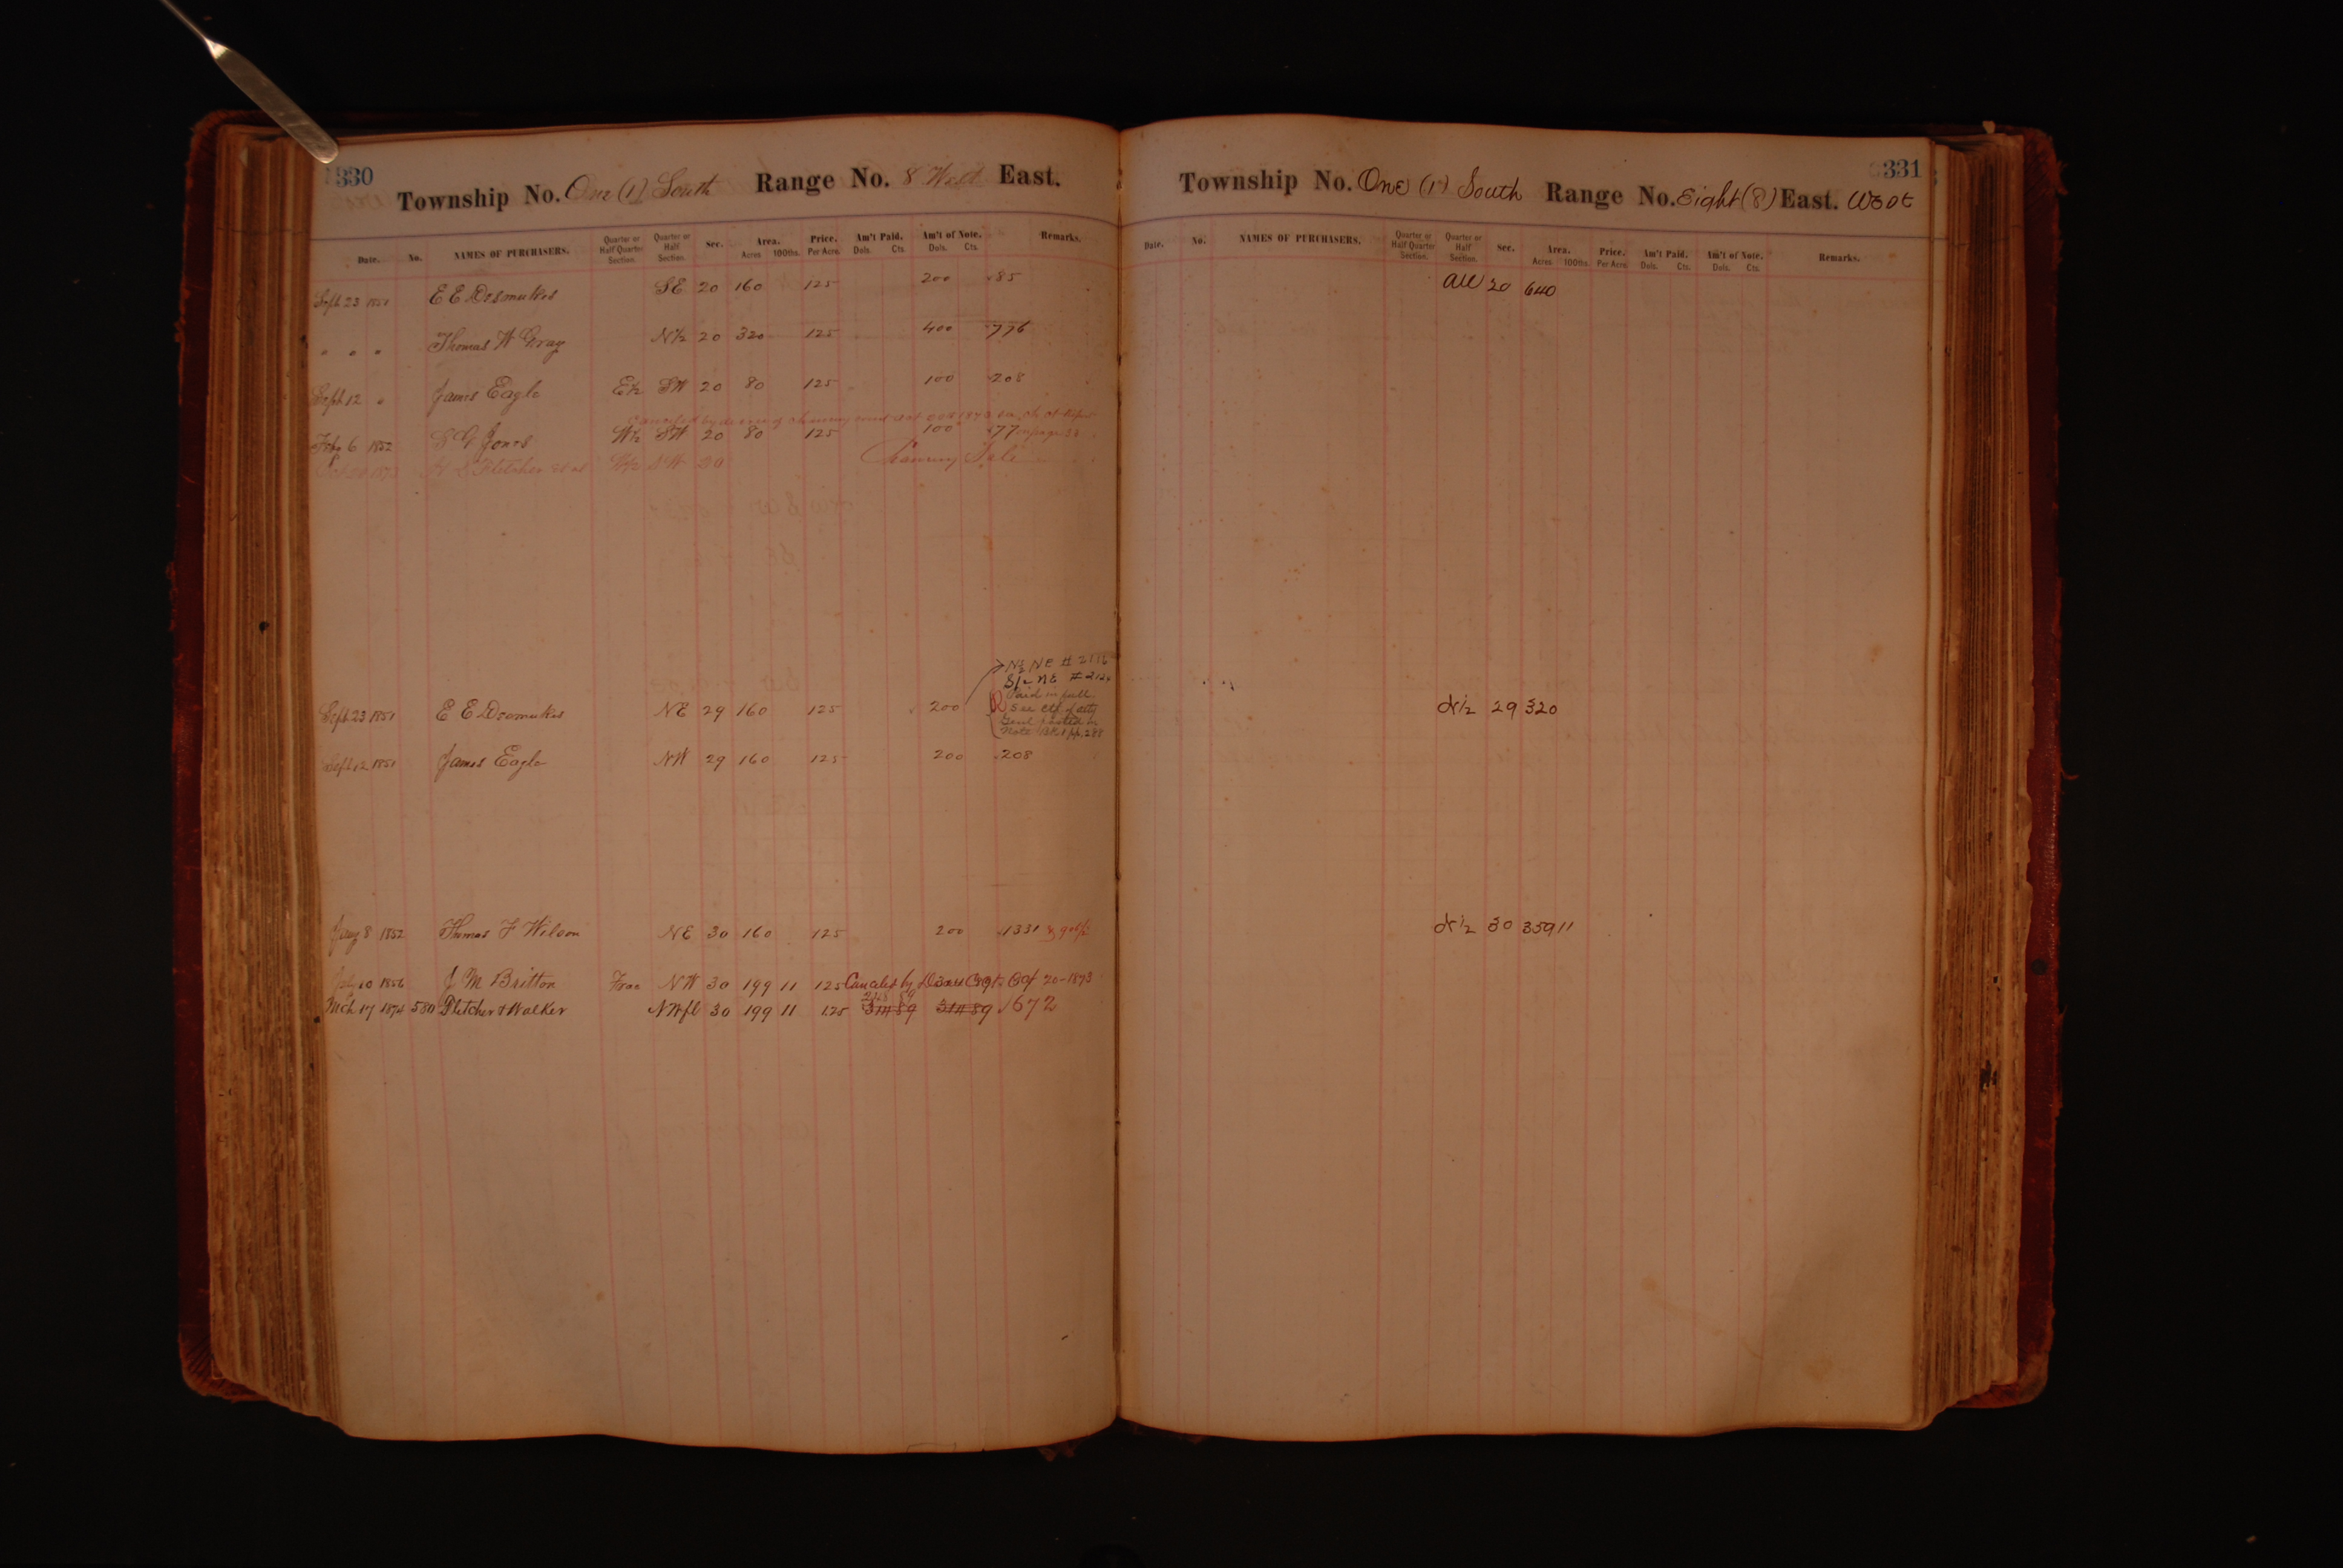 330
Township No. One (1) South Range No. 8 West East.
Date. No. NAMES OF PURCHASERS. Quarter or Half Quarter Section. Quarter or Half Section. Sec. Area. Acres 100ths. Price. Per Acre. Am't Paid. Dols. Cts. Am't of Note. Dols. Cts. Remarks.
Sept 23 1851 E E Desmukes SE 20 160 125 200 85
" " " Thomas W Gray N½ 20 320 125 400 776
Sept 12 " James Eagle E½ SW 20 80 125 100 208
Canceled by decree of chancery court
Feby 6 1852 S G Jones W½ SW 20 80 125 100 77 on page 28
1873 Fletcher et al W½ SW 20 Chancery Sale
N½ NE # 2116
S/2 NE # 2124
Paid in full
Sept 23 1851 E E Desmukes NE 29 160 125 200 See Ctf of atty
Genl pasted in
Note BK 1 pp. 288
Sept 12 1851 James Eagle NW 29 160 125 200 208
Jany 8 1852 Thomas F Wilson NE 30 160 125 200 1331
10 1856 J M Britton Frac NW 30 199 11 125 Canceled by 20-1873
Mch 17 1874 580 Fletcher & Walker NWfl 30 199 11 125 1672
331
Township No. One (1) South Range No. Eight (8) East. West
Date. No. NAMES OF PURCHASERS. Quarter or Half Quarter Section. Quarter or Half Section. Sec. Area. Acres 100ths. Price. Per Acre. Am't Paid. Dols. Cts. Am't of Note. Dols. Cts. Remarks.
All 20 640
N½ 29 320
N½ 30 359 11